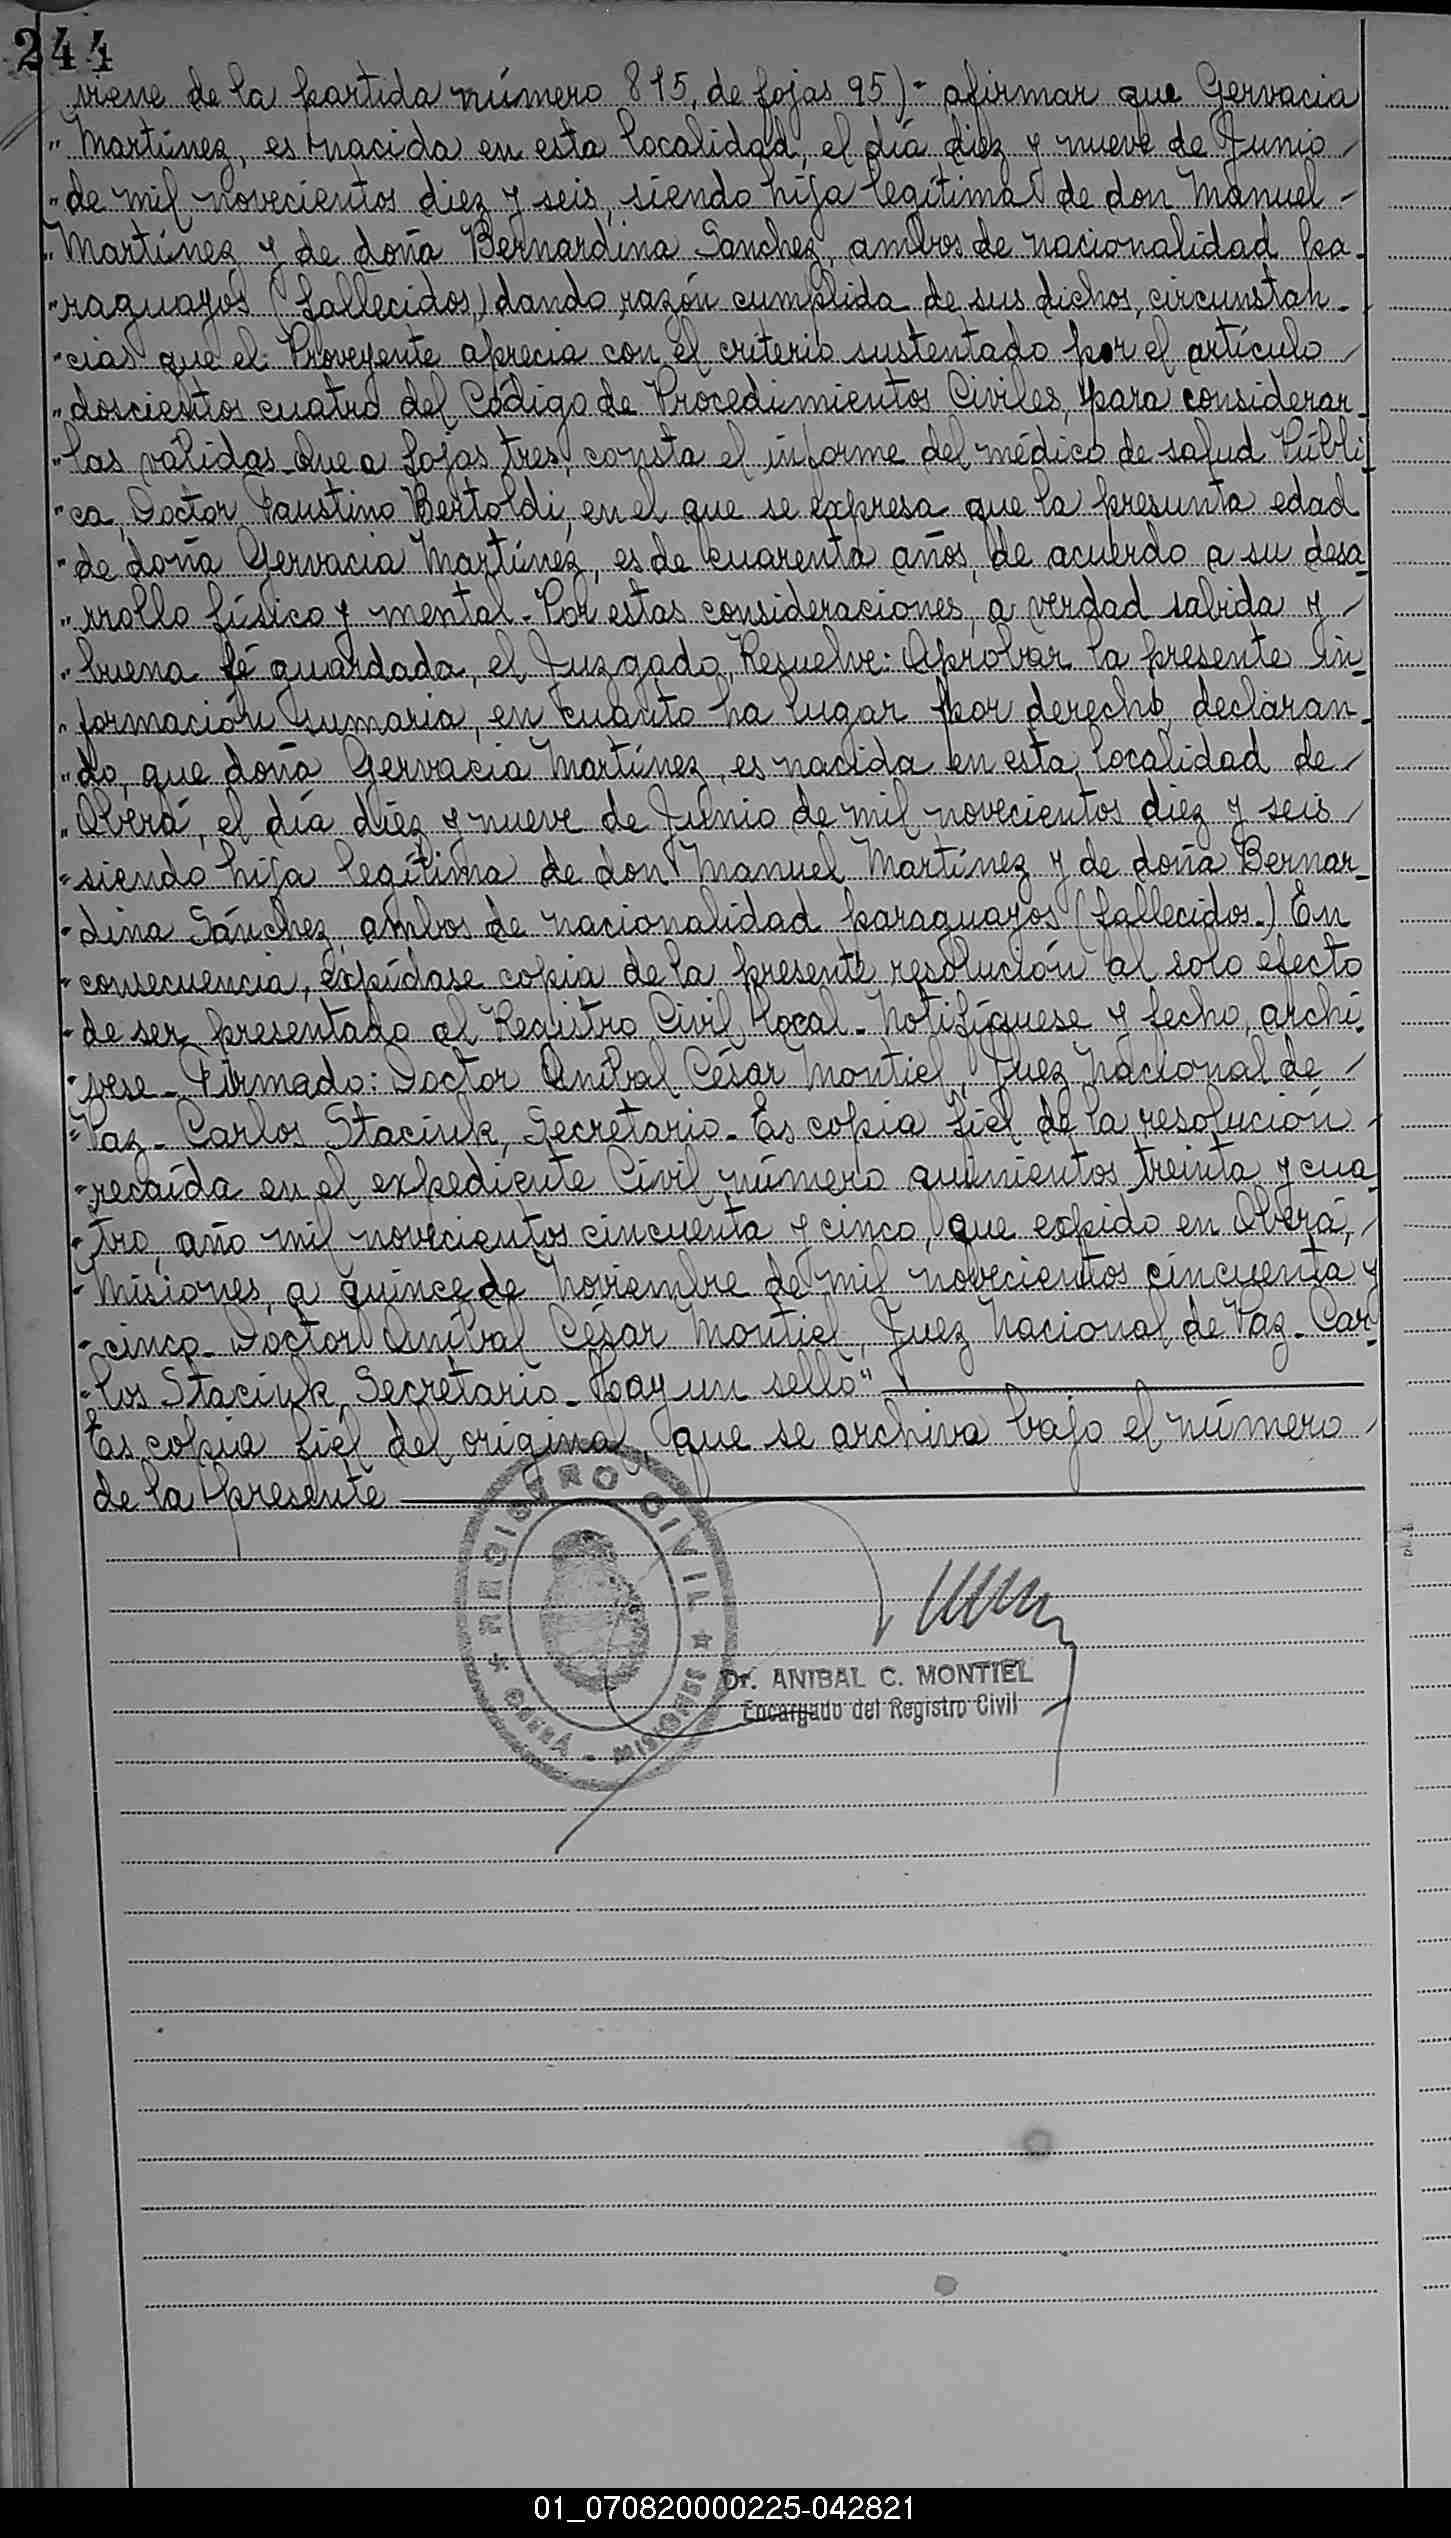 244
viene de la partida número 815, de fojas 95)- afirmar que Gervacia
" Martínez, es nacida en esta localidad, el día diez y nueve de Junio
" de mil novecientos diez y seis, siendo hija legítima de don Manuel -
" Martínez y de doña Bernardina Sanchez, ambos de nacionalidad pa-
" raguayos (fallecidos,) dando razón cumplida de sus dichos, circunstan-
" cias que el Proveyente aprecia con el criterio sustentado por el artículo
" doscientos cuatro del Código de Procedimientos Civiles, para considerar-
" las válidas. Que a fojas tres, consta el informe del médico de salud Públi-
" ca, Doctor Faustino Bertoldi, en el que se expresa que la presunta edad
" de doña Gervacia Martínez, es de cuarenta años, de acuerdo a su desa-
" rrollo físico y mental. Por estas consideraciones, a verdad sabida y
" buena fé guardada, el Juzgado, Resuelve: Aprobar la presente in-
" formación sumaria, en cuanto ha lugar por derecho, declaran-
" do, que doña Gervacia Martínez, es nacida en esta localidad de
" Oberá, el día diez y nueve de Junio de mil novecientos diez y seis
" siendo hija legítima de don Manuel Martínez y de doña Bernar-
" dina Sánchez, ambos de nacionalidad paraguayos (fallecidos.) En
" consecuencia, expídase copia de la presente resolución al solo efecto
" de ser presentado al Registro Civil local. Notifíquese y fecho, archí-
" vese. Firmado: Doctor Anibal César Montiel, Juez Nacional de
" Paz. Carlos Staciuk, Secretario. Es copia fiel de la resolución
" recaída en el expediente Civil número quinientos treinta y cua-
" tro, año mil novecientos cincuenta y cinco, que expido en Oberá,
" Misiones, a quince de Noviembre de mil novecientos cincuenta y
" cinco. Doctor Anibal César Montiel, Juez Nacional de Paz. Car-
" los Staciuk, Secretario. Hay un sello"
Es copia fiel del original, que se archiva bajo el número
de la presente
REGISTRO CIVIL
OBERÁ - MISIONES
Dr. ANIBAL C. MONTIEL
Encargado del Registro Civil
01_070820000225-042821